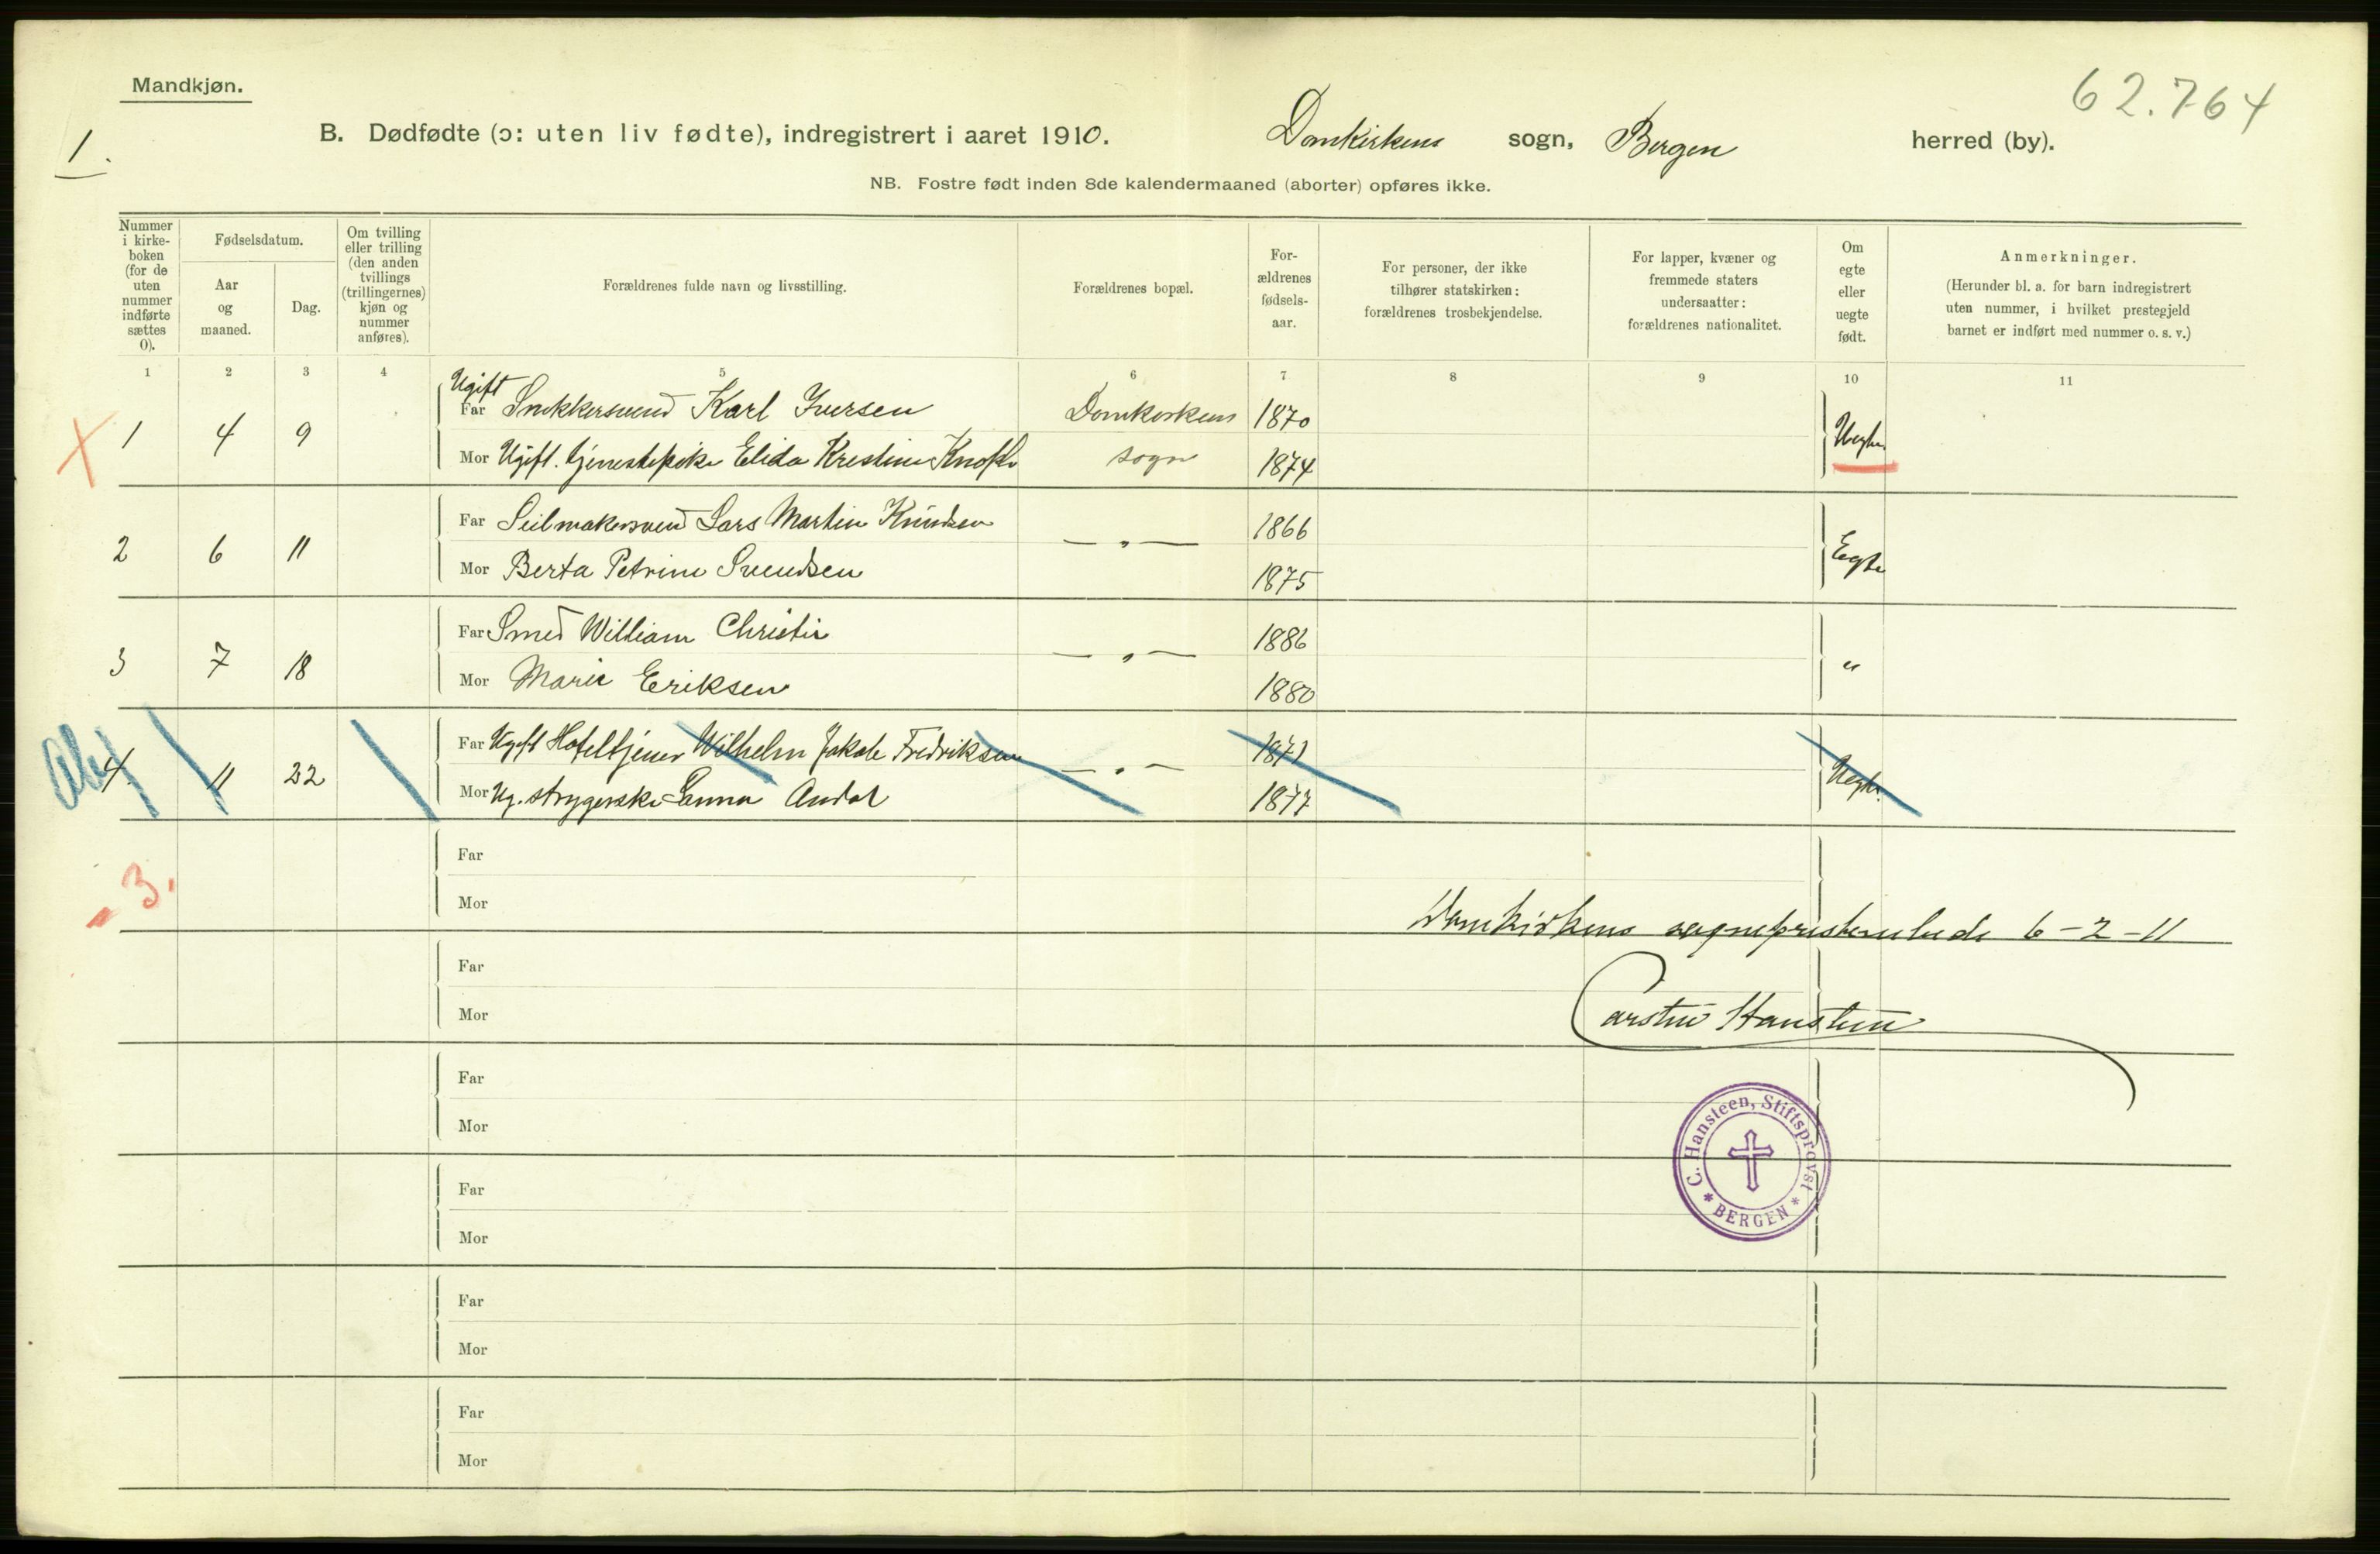 Mandkjøn.
62.764
1.
B. Dødfødte (ɔ: uten liv fødte), indregistrert i aaret 1910. Domkirkens sogn, Bergen herred (by).
NB. Fostre født inden 8de kalendermaaned (aborter) opføres ikke.
Nummer i kirke- boken (for de uten nummer indførte sættes 0).
Fødselsdatum.
Aar og maaned.
Dag.
Om tvilling eller trilling (den anden tvillings (trillingernes) kjøn og nummer anføres).
Forældrenes fulde navn og livsstilling.
Forældrenes bopæl.
For- ældrenes fødsels- aar.
For personer, der ikke tilhører statskirken: forældrenes trosbekjendelse.
For lapper, kvæner og fremmede staters undersaatter: forældrenes nationalitet.
Om egte eller uegte født.
Anmerkninger.
(Herunder bl. a. for barn indregistrert uten nummer, i hvilket prestegjeld barnet er indført med nummer o. s. v.)
1 2 3 4 5 6 7 8 9 10 11
Ugift
X 1 4 9 Far Snekkersvend Karl Iversen Domkirkens 1870 Uegte
Mor Ugift. tjenestepike Elida Kristine sogn 1874
2 6 11 Far Seilmakersvend Lars Martin Knudsen — „ — 1866 Egte
Mor Berta Petrine Svendsen 1875
3 7 18 Far Smed William Christie — „ — 1886 „
Mor Marie Eriksen 1880
4 11 22 Far Ugift Hoteltjener Wilhelm Jakob Fredriksen — „ — 1871 Uegte
Mor Ug. strygerske Anna Andal 1877
Far
3.
Mor
Domkirkens sogneprestembede 6-2-11
Far
Mor
Carsten Hansteen
Far
Mor
C. Hansteen, Stiftsprovst
* BERGEN *
Far
Mor
Far
Mor
Far
Mor